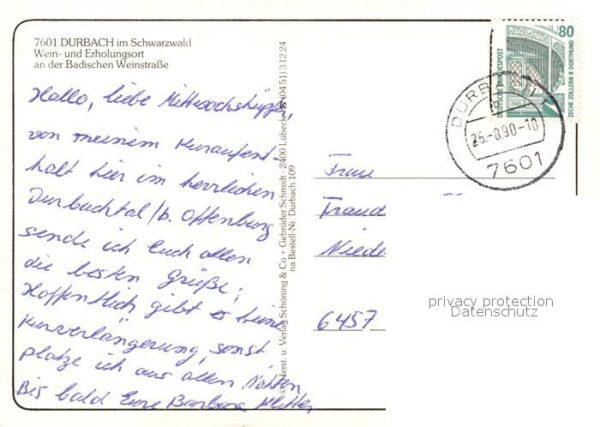 7601 DURBACH im Schwarzwald
Wein- und Erholungsort
an der Badischen Weinstraße
Hallo, liebe
von meinem Kuraufent-
halt hier im herrlichen
Durbachtal/b. Offenburg
sende ich Euch allen
die besten Grüße;
Hoffentlich gibt es keine
Kurverlängerung, sonst
platze ich aus allen Nähten
Bis bald Eure Barbara
Verlag Schöning & Co + Gebrüder Schmidt - 2400 Lübeck
Bestell-Nr. Durbach 109
80
DEUTSCHE BUNDESPOST
ZECHE ZOLLERN II DORTMUND
DURBACH
7601
Frau
6457
privacy protection
Datenschutz